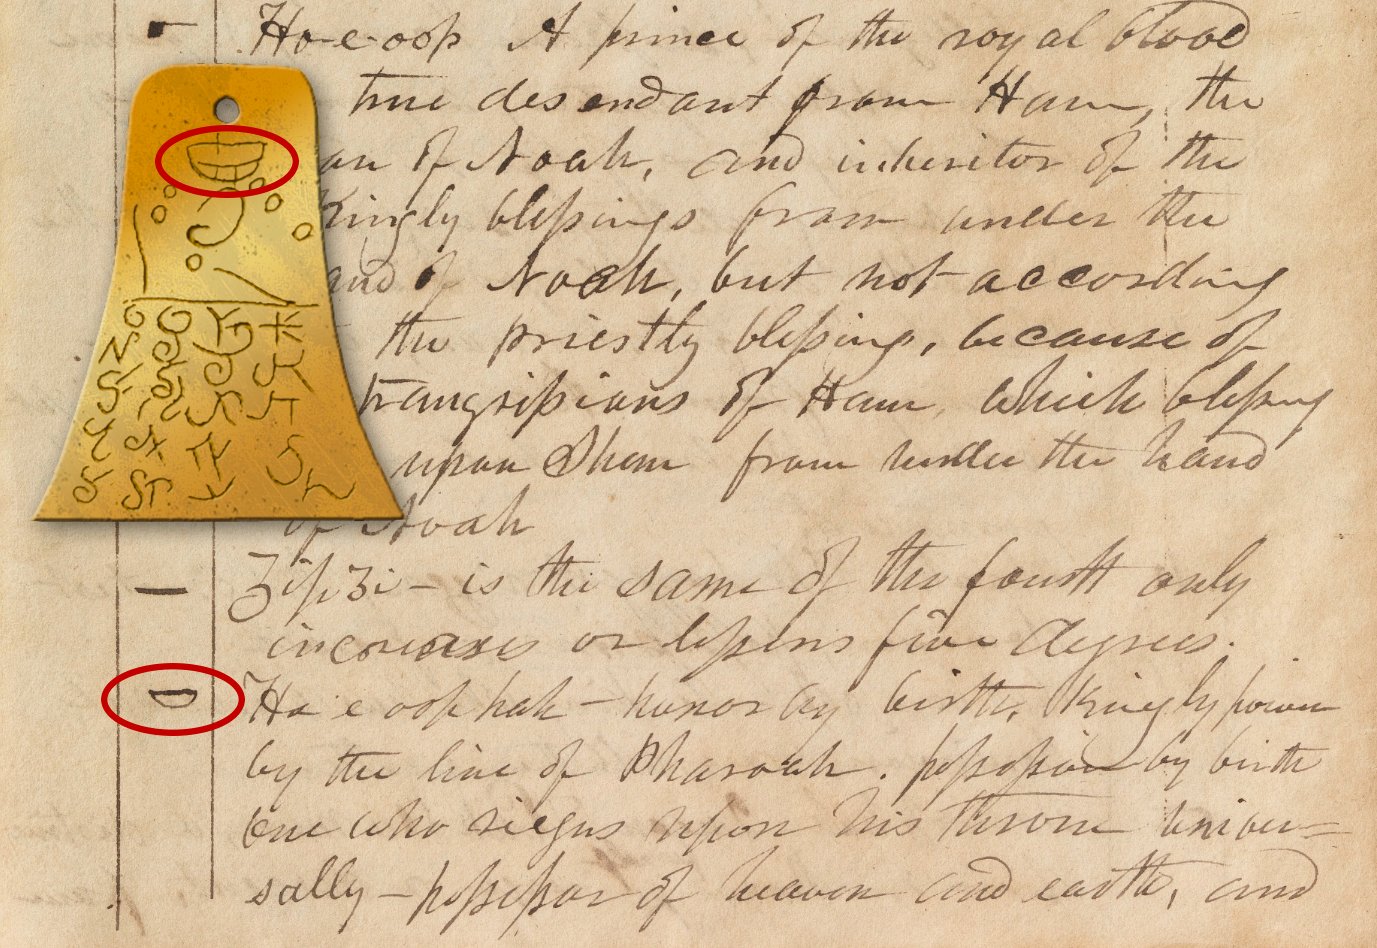 Ho-e-oop A prince of the royal blood
true desendant from Ham, the
of Noah, and inheritor of the
Kingly blessings from under the
and of Noah, but not according
the priestly blessing, because of
trangrissions of Ham, which blessing
upon Shem from under the hand
of Noah
Zip Zi – is the same of the fourth only
increases or lessens five degrees.
Ho e oop hah – honor by birth, Kingly power
by the line of Pharoah. possession by birth
one who riegns upon his throne univer=
sally – possessor of heaven and earth, and